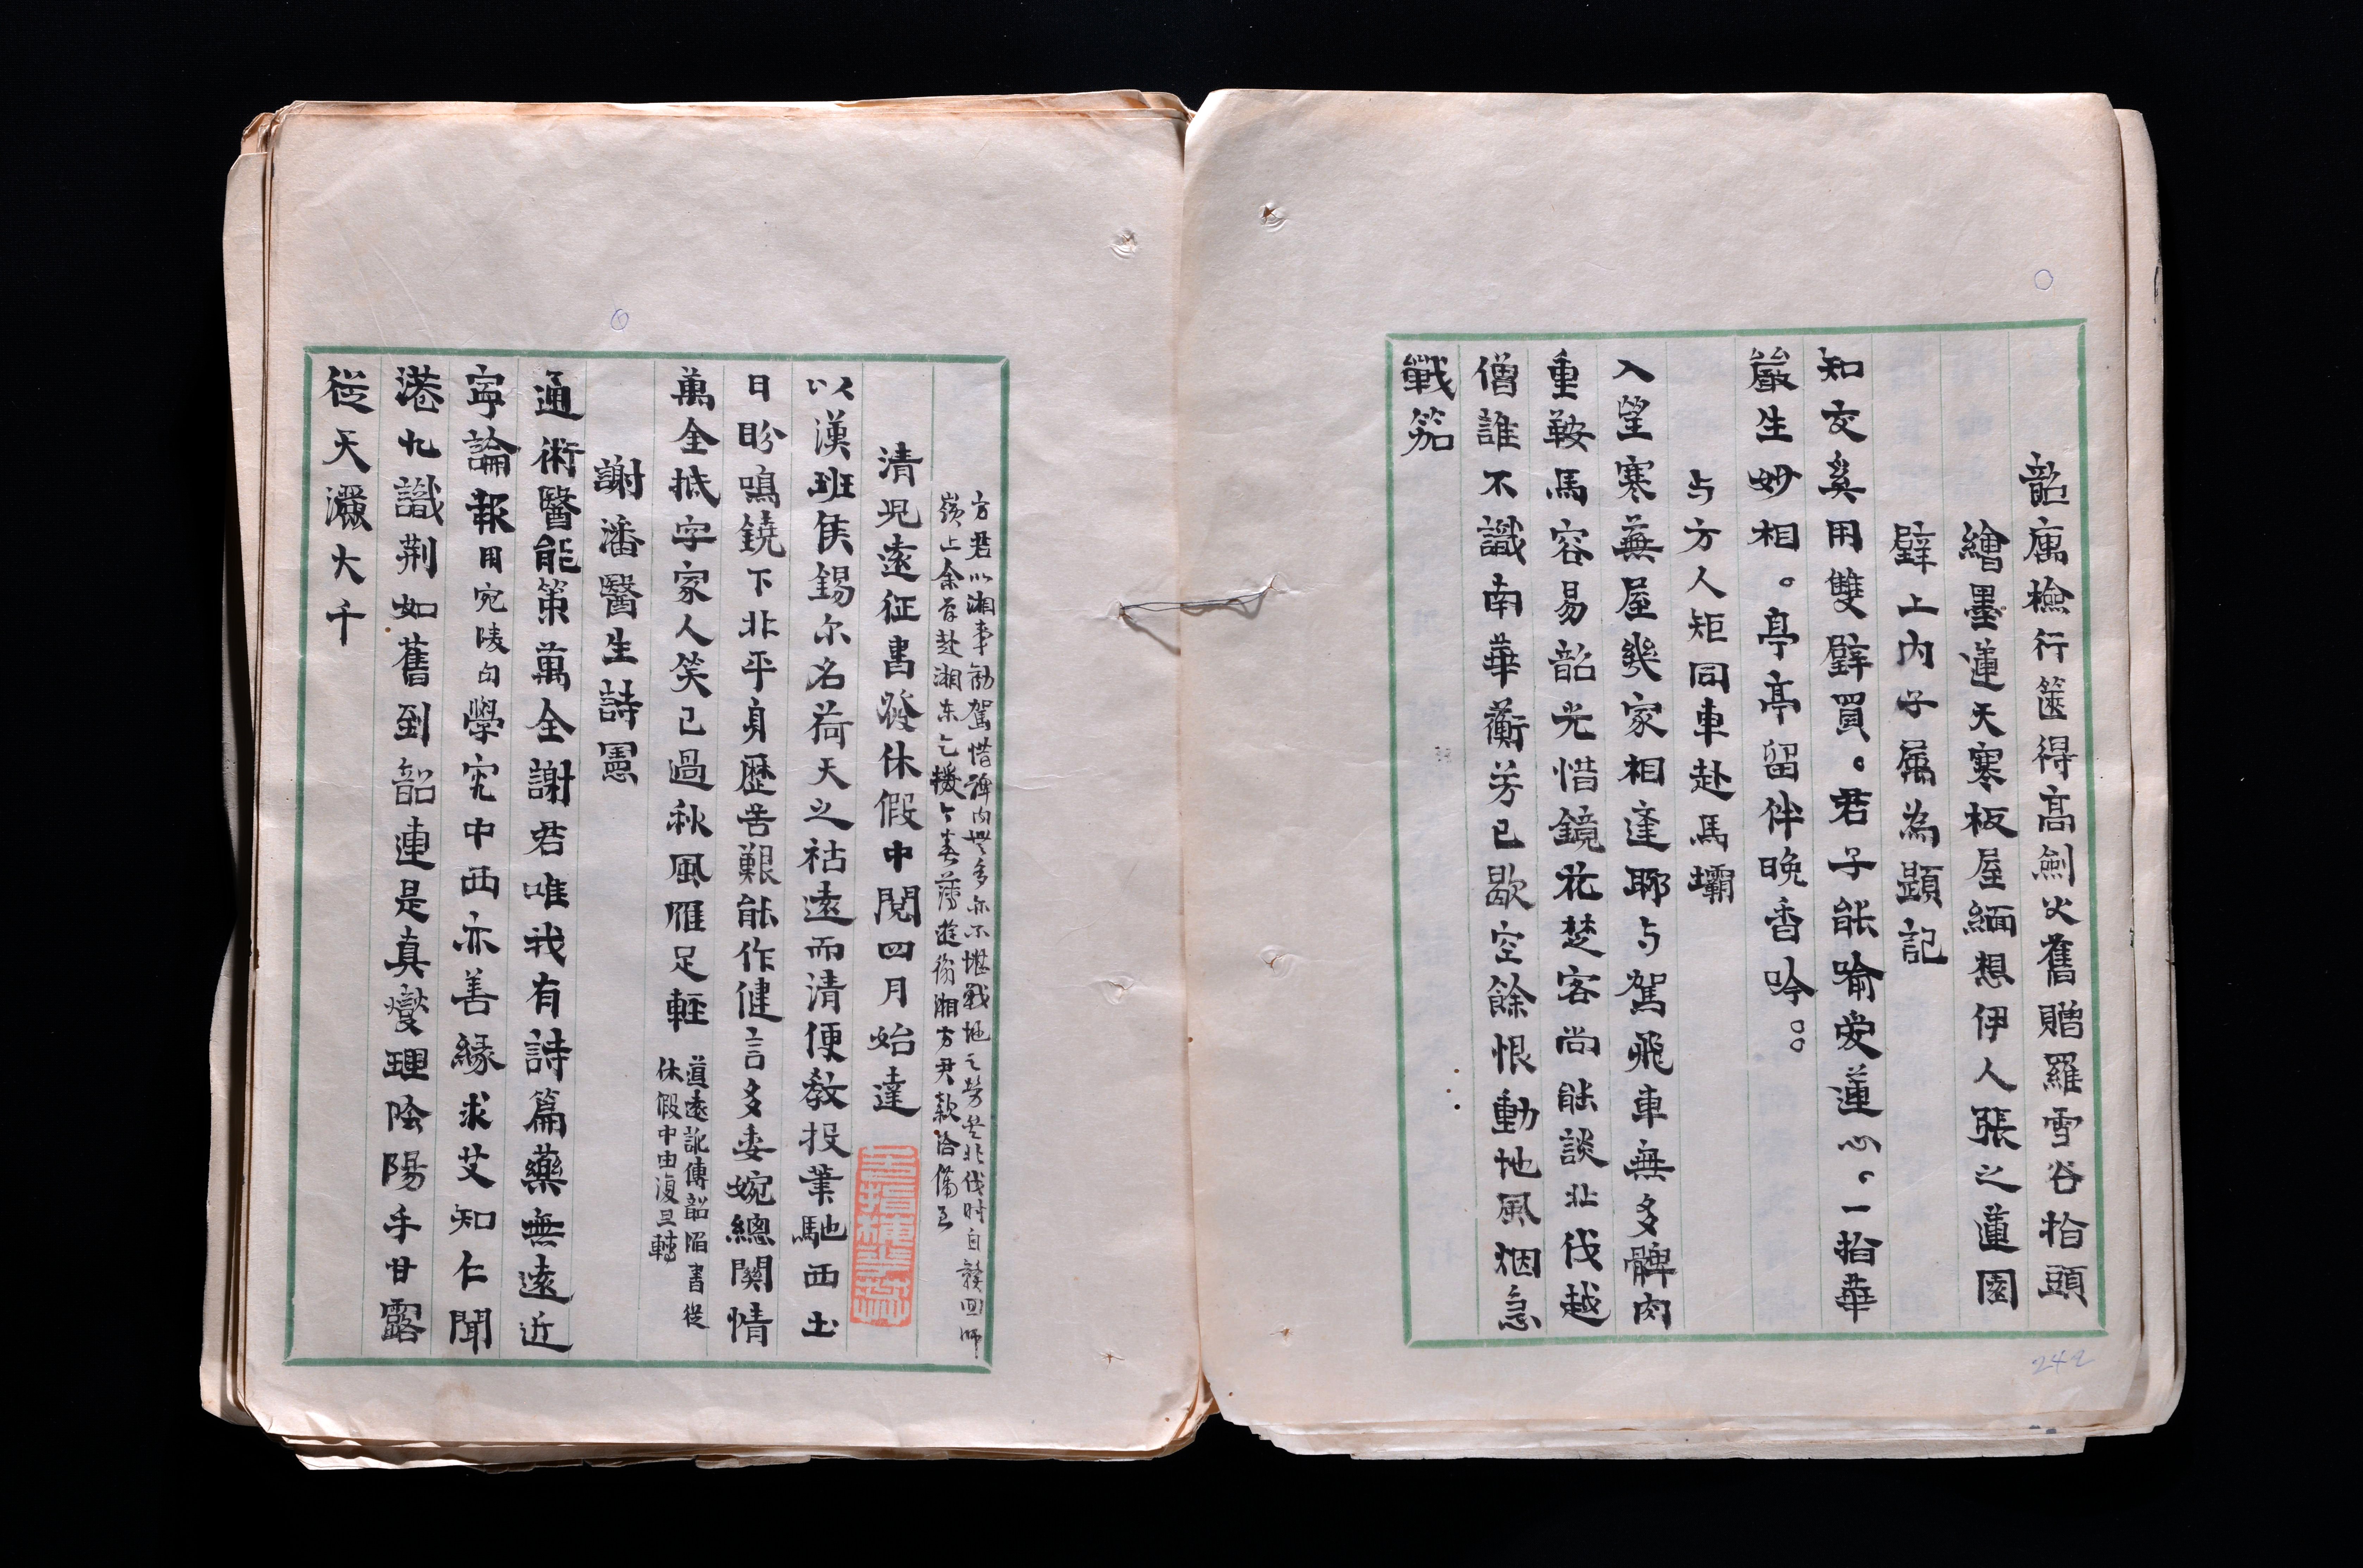 韶寓檢行篋得高劍父舊贈羅雪谷指頭
繪墨蓮天寒板屋緬想伊人張之蓮園
壁上內子屬為題記
知交奚用雙璧買。君子能喻愛蓮心。一指華
嚴生妙相。亭亭留伴晚香吟。。
与方人矩同車赴馬壩
入望寒蕪屋幾家相逢聊与駕飛車無多髀肉
重鞍馬容易韶光惜鏡花楚客尚能談北伐越
僧誰不識南華蘅芳已歇空餘恨動地風烟急
戰笳
242
方君以湘事勸駕惜髀肉無多亦不堪戰地之勞矣北伐时自赣回师
嶺上余嘗赴湘东乞援今春薄遊衡湘方君款洽備至
清兒遠征書發休假中閱四月始達
以漢班侯錫尔名荷天之祜遠而清便教投筆馳西土
日盼鳴鐃下北平身歷苦艱能作健言多委婉總関情
萬金抵字家人笑已過秋風雁足輕
道遠訛傳韶陷書從
休假中由復旦轉
謝潘醫生詩憲
通術醫能策萬全謝君唯我有詩篇藥無遠近
寧論報用宛陵句學究中西亦善緣求艾知仁聞
港九識荆如舊到韶連是真燮理陰陽手甘露
從天灑大千